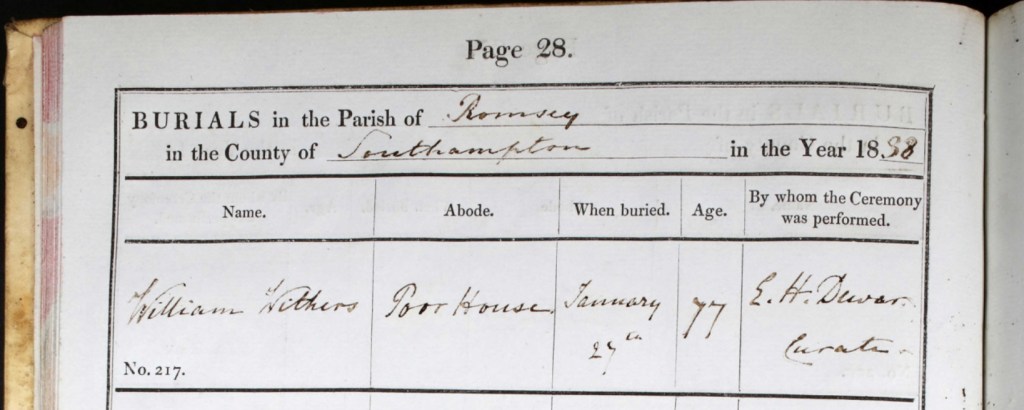 Page 28.
BURIALS in the Parish of Romsey
in the County of Southampton in the Year 1838
Name. Abode. When buried. Age. By whom the Ceremony was performed.
William Withers Poor House. January 77 E. H. Dewar.
27th Curate
No. 217.